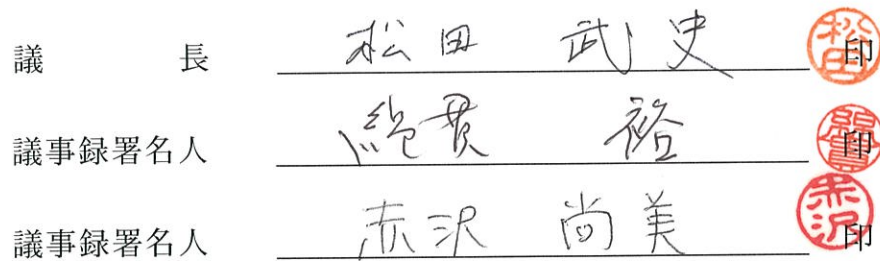 議長 松田 武史 松田 印
議事録署名人 絹貫 裕 印
議事録署名人 赤沢 尚美 赤沢 印